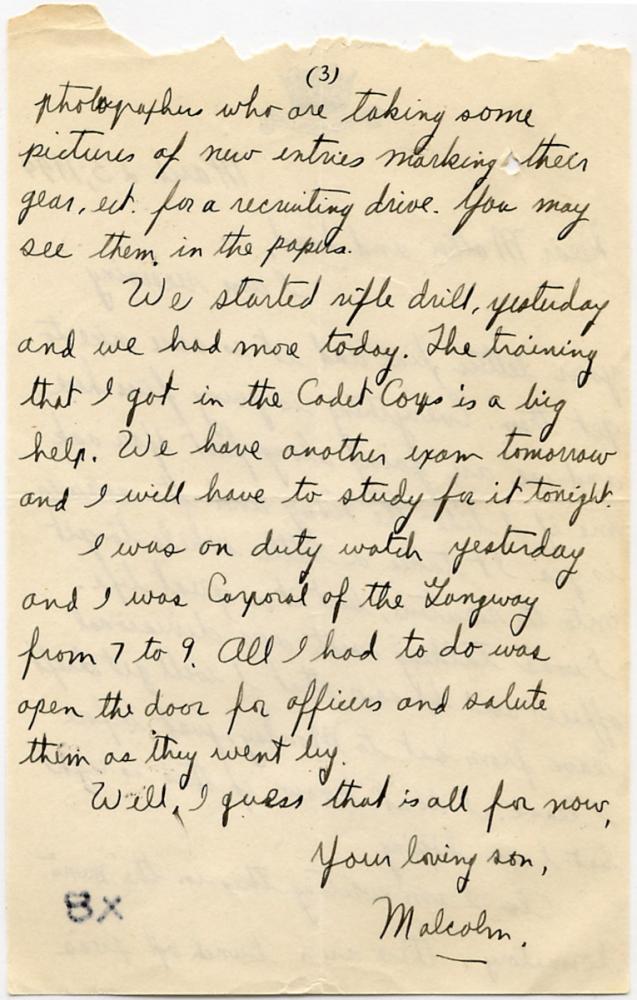 (3)
photographers who are taking some
pictures of new entries marking their
gear, ect. for a recruiting drive. You may
see them in the papers.
We started rifle drill, yesterday
and we had more today. The training
that I got in the Cadet Corps is a big
help. We have another exam tomorrow
and I will have to study for it tonight.
I was on duty watch yesterday
and I was Corporal of the Gangway
from 7 to 9. All I had to do was
open the door for officers and salute
them as they went by.
Well, I guess that is all for now,
Your loving son,
Malcolm.
8X